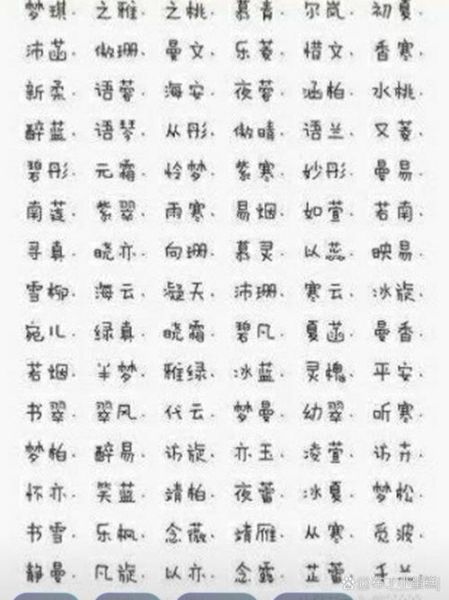 梦琪、之雅、之桃、慕青、尔岚、初夏、
沛菡、傲珊、曼文、乐菱、惜文、香寒、
新柔、语蓉、海安、夜蓉、涵柏、水桃、
醉蓝、语琴、从彤、傲晴、语兰、又菱、
碧彤、元霜、怜梦、紫寒、妙彤、曼易、
南莲、紫翠、雨寒、易烟、如萱、若南、
寻真、晓亦、向珊、慕灵、以蕊、映易、
雪柳、海云、凝天、沛珊、寒云、冰旋、
宛儿、绿真、晓霜、碧凡、夏菡、曼香、
若烟、半梦、雅绿、冰蓝、灵槐、平安、
书翠、翠风、代云、梦曼、幼翠、听寒、
梦柏、醉易、访旋、亦玉、凌萱、访卉、
怀亦、笑蓝、靖柏、夜蕾、冰夏、梦松、
书雪、乐枫、念薇、靖雁、从寒、觅波、
静曼、凡旋、以亦、念露、芷蕾、千兰、